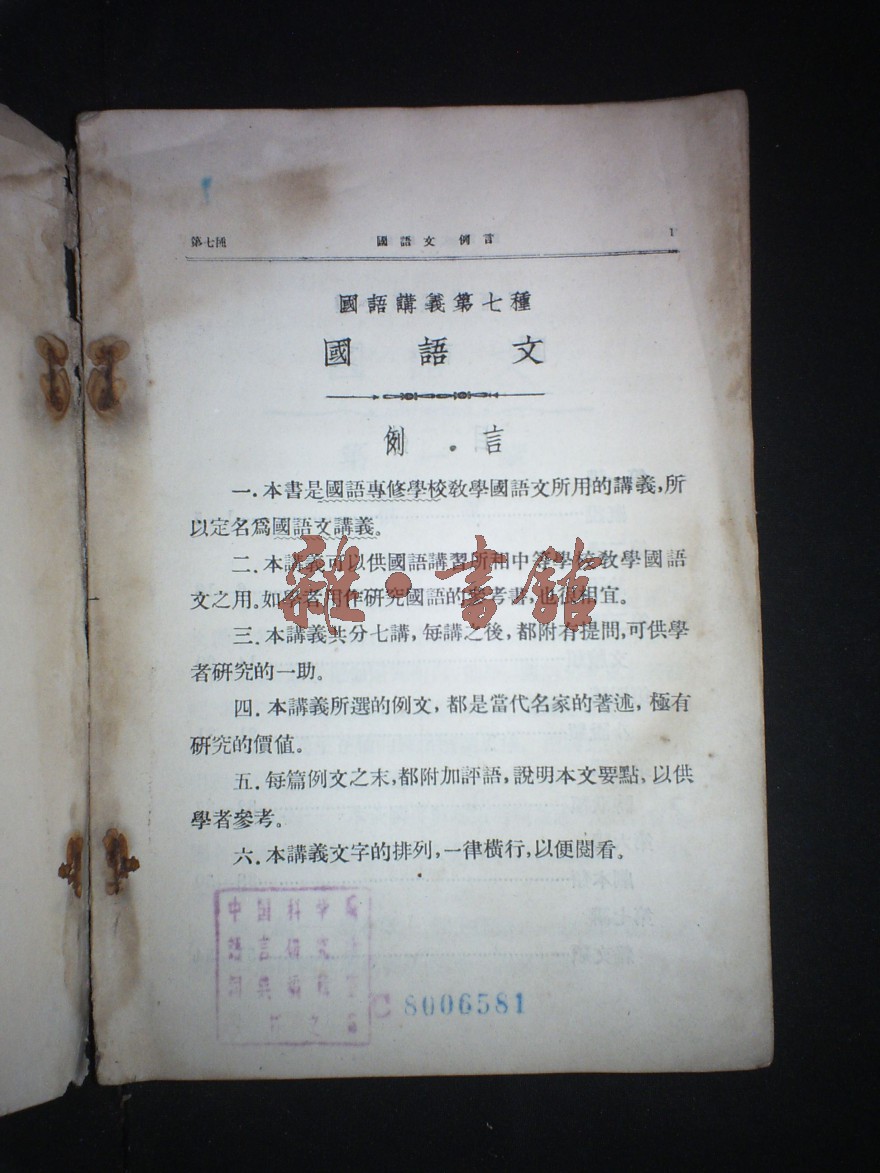 第七種 國語文 例言 1
國語講義第七種
國語文
例言
一．本書是國語專修學校教學國語文所用的講義，所
以定名爲國語文講義。
二．本講義可以供國語講習所和中等學校教學國語
文之用。如學者用作研究國語的參考書，也很相宜。
三．本講義共分七講，每講之後，都附有提問，可供學
者研究的一助。
四．本講義所選的例文，都是當代名家的著述，極有
研究的價值。
五．每篇例文之末，都附加評語，說明本文要點，以供
學者參考。
六．本講義文字的排列，一律橫行，以便閱看。
雜·書館
中国科学院
語言研究所
詞典編輯室
C 8006581